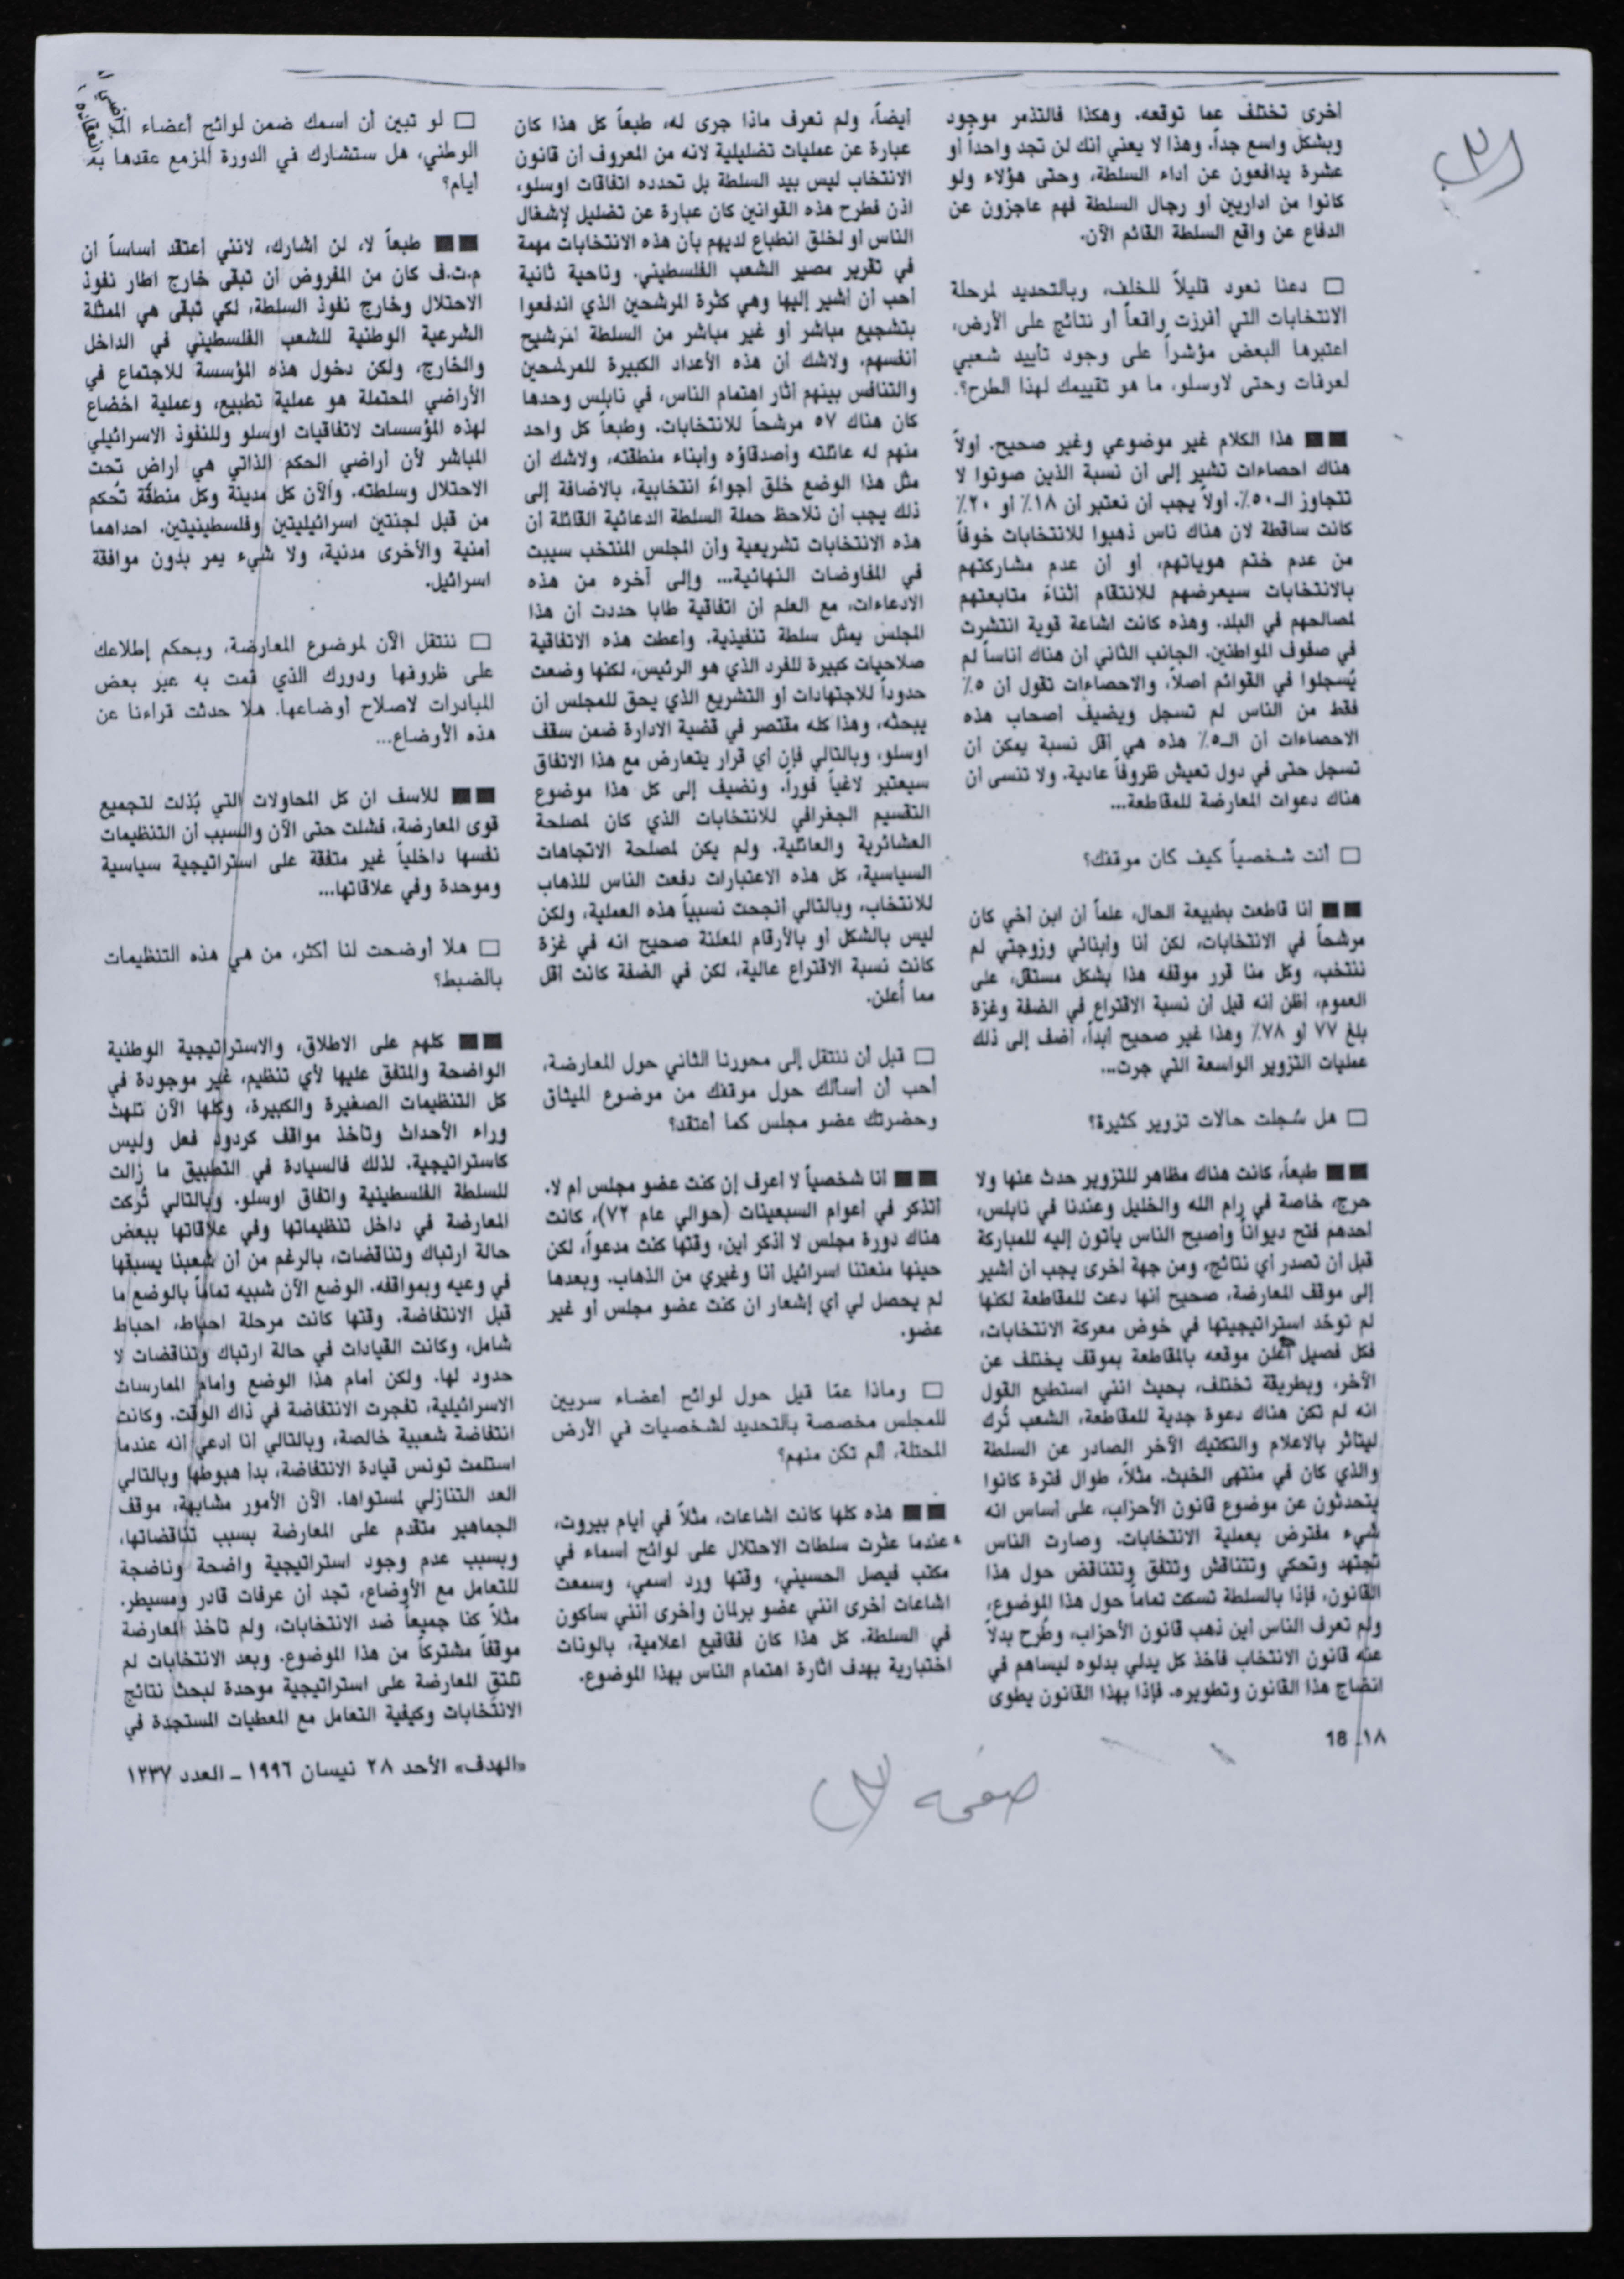 أخرى تختلف عما توقعه. وهكذا فالتذمر موجود
وبشكل واسع جداً. وهذا لا يعني أنك لن تجد واحداً أو
عشرة يدافعون عن أداء السلطة، وحتى هؤلاء ولو
كانوا من اداريين أو رجال السلطة فهم عاجزون عن
الدفاع عن واقع السلطة القائم الآن.
□ دعنا نعود قليلاً للخلف، وبالتحديد لمرحلة
الانتخابات التي أفرزت واقعاً أو نتائج على الأرض،
اعتبرها البعض مؤشراً على وجود تأييد شعبي
لعرفات وحتى لاوسلو، ما هو تقييمك لهذا الطرح؟.
■■ هذا الكلام غير موضوعي وغير صحيح. أولاً
هناك احصاءات تشير إلى أن نسبة الذين صوتوا لا
تتجاوز الـ٥٠٪. أولاً يجب أن نعتبر أن ١٨٪ أو ٢٠٪
كانت ساقطة لان هناك ناس ذهبوا للانتخابات خوفاً
من عدم ختم هوياتهم، أو أن عدم مشاركتهم
بالانتخابات سيعرضهم للانتقام أثناء متابعتهم
لمصالحهم في البلد. وهذه كانت اشاعة قوية انتشرت
في صفوف المواطنين. الجانب الثاني أن هناك أناساً لم
يُسجلوا في القوائم أصلاً، والاحصاءات تقول أن ٥٪
فقط من الناس لم تسجل ويضيف أصحاب هذه
الاحصاءات أن الـ٥٪ هذه هي أقل نسبة يمكن أن
تسجل حتى في دول تعيش ظروفاً عادية. ولا تنسى أن
هناك دعوات المعارضة للمقاطعة...
□ أنت شخصياً كيف كان موقفك؟
■■ أنا قاطعت بطبيعة الحال، علماً أن ابن أخي كان
مرشحاً في الانتخابات، لكن أنا وأبنائي وزوجتي لم
ننتخب، وكل منا قرر موقفه هذا بشكل مستقل، على
العموم، أظن أنه قيل أن نسبة الاقتراع في الضفة وغزة
بلغ ٧٧ أو ٧٨٪ وهذا غير صحيح أبداً، أضف إلى ذلك
عمليات التزوير الواسعة التي جرت...
□ هل سُجلت حالات تزوير كثيرة؟
■■ طبعاً، كانت هناك مظاهر للتزوير حدث عنها ولا
حرج، خاصة في رام الله والخليل وعندنا في نابلس،
أحدهم فتح ديواناً وأصبح الناس يأتون إليه للمباركة
قبل أن تصدر أي نتائج، ومن جهة أخرى يجب أن أشير
إلى موقف المعارضة، صحيح أنها دعت للمقاطعة لكنها
لم توحّد استراتيجيتها في خوض معركة الانتخابات،
فكل فصيل أعلن موقعه بالمقاطعة بموقف يختلف عن
الآخر، وبطريقة تختلف، بحيث انني استطيع القول
انه لم تكن هناك دعوة جدية للمقاطعة، الشعب تُرك
ليتأثر بالاعلام والتكتيك الآخر الصادر عن السلطة
والذي كان في منتهى الخبث. مثلاً، طوال فترة كانوا
يتحدثون عن موضوع قانون الأحزاب، على أساس انه
شيء مفترض بعملية الانتخابات. وصارت الناس
تجتهد وتحكي وتتناقش وتتفق وتتناقض حول هذا
القانون، فإذا بالسلطة تسكت تماماً حول هذا الموضوع،
ولم تعرف الناس أين ذهب قانون الأحزاب، وطُرح بدلاً
عنه قانون الانتخاب فأخذ كل يدلي بدلوه ليساهم في
انضاج هذا القانون وتطويره. فإذا بهذا القانون يطوى
١٨ـ 18
أيضاً، ولم نعرف ماذا جرى له، طبعاً كل هذا كان
عبارة عن عمليات تضليلية لانه من المعروف أن قانون
الانتخاب ليس بيد السلطة بل تحدده اتفاقات اوسلو،
اذن فطرح هذه القوانين كان عبارة عن تضليل لإشغال
الناس أو لخلق انطباع لديهم بأن هذه الانتخابات مهمة
في تقرير مصير الشعب الفلسطيني. وناحية ثانية
أحب أن أشير إليها وهي كثرة المرشحين الذي اندفعوا
بتشجيع مباشر أو غير مباشر من السلطة لترشيح
أنفسهم. ولاشك أن هذه الأعداد الكبيرة للمرشحين
والتنافس بينهم أثار اهتمام الناس، في نابلس وحدها
كان هناك ٥٧ مرشحاً للانتخابات. وطبعاً كل واحد
منهم له عائلته وأصدقاؤه وأبناء منطقته، ولاشك أن
مثل هذا الوضع خلق أجواءً انتخابية، بالاضافة إلى
ذلك يجب أن نلاحظ حملة السلطة الدعائية القائلة أن
هذه الانتخابات تشريعية وأن المجلس المنتخب سيبت
في المفاوضات النهائية... وإلى آخره من هذه
الادعاءات، مع العلم أن اتفاقية طابا حددت أن هذا
المجلس يمثل سلطة تنفيذية. وأعطت هذه الاتفاقية
صلاحيات كبيرة للفرد الذي هو الرئيس، لكنها وضعت
حدوداً للاجتهادات أو التشريع الذي يحق للمجلس أن
يبحثه، وهذا كله مقتصر في قضية الادارة ضمن سقف
اوسلو، وبالتالي فإن أي قرار يتعارض مع هذا الاتفاق
سيعتبر لاغياً فوراً. ونضيف إلى كل هذا موضوع
التقسيم الجغرافي للانتخابات الذي كان لمصلحة
العشائرية والعائلية. ولم يكن لمصلحة الاتجاهات
السياسية، كل هذه الاعتبارات دفعت الناس للذهاب
للانتخاب، وبالتالي أنجحت نسبياً هذه العملية، ولكن
ليس بالشكل أو بالأرقام المعلنة صحيح انه في غزة
كانت نسبة الاقتراع عالية، لكن في الضفة كانت أقل
مما أُعلن.
□ قبل أن ننتقل إلى محورنا الثاني حول المعارضة،
أحب أن أسألك حول موقفك من موضوع الميثاق
وحضرتك عضو مجلس كما أعتقد؟
■■ أنا شخصياً لا أعرف إن كنت عضو مجلس أم لا.
أتذكر في أعوام السبعينات (حوالي عام ٧٢)، كانت
هناك دورة مجلس لا أذكر أين، وقتها كنت مدعواً، لكن
حينها منعتنا اسرائيل أنا وغيري من الذهاب. وبعدها
لم يحصل لي أي إشعار ان كنت عضو مجلس أو غير
عضو.
□ وماذا عمّا قيل حول لوائح أعضاء سريين
للمجلس مخصصة بالتحديد لشخصيات في الأرض
المحتلة، ألم تكن منهم؟
■■ هذه كلها كانت اشاعات، مثلاً في أيام بيروت،
عندما عثرت سلطات الاحتلال على لوائح أسماء في
مكتب فيصل الحسيني، وقتها ورد اسمي، وسمعت
اشاعات أخرى انني عضو برلمان وأخرى أنني سأكون
في السلطة. كل هذا كان فقاقيع اعلامية، بالونات
اختبارية بهدف اثارة اهتمام الناس بهذا الموضوع.
□ لو تبين أن اسمك ضمن لوائح أعضاء المج
الوطني، هل ستشارك في الدورة المزمع عقدها بعـ
أيام؟
■■ طبعاً لا، لن أشارك، لانني أعتقد أساساً أن
م.ت.ف كان من المفروض أن تبقى خارج اطار نفوذ
الاحتلال وخارج نفوذ السلطة، لكي تبقى هي الممثلة
الشرعية الوطنية للشعب الفلسطيني في الداخل
والخارج، ولكن دخول هذه المؤسسة للاجتماع في
الأراضي المحتملة هو عملية تطبيع، وعملية اخضاع
لهذه المؤسسات لاتفاقيات اوسلو وللنفوذ الاسرائيلي
المباشر لأن أراضي الحكم الذاتي هي أراضٍ تحت
الاحتلال وسلطته. والآن كل مدينة وكل منطقة تُحكم
من قبل لجنتين اسرائيليتين وفلسطينيتين. احداهما
أمنية والأخرى مدنية، ولا شيء يمر بدون موافقة
اسرائيل.
□ ننتقل الآن لموضوع المعارضة، وبحكم إطلاعك
على ظروفها ودورك الذي قمت به عبر بعض
المبادرات لاصلاح أوضاعها. هلا حدثت قراءنا عن
هذه الأوضاع...
■■ للأسف ان كل المحاولات التي بُذلت لتجميع
قوى المعارضة، فشلت حتى الآن والسبب أن التنظيمات
نفسها داخلياً غير متفقة على استراتيجية سياسية
وموحدة وفي علاقاتها...
□ هلا أوضحت لنا أكثر، من هي هذه التنظيمات
بالضبط؟
■■ كلهم على الاطلاق، والاستراتيجية الوطنية
الواضحة والمتفق عليها لأي تنظيم، غير موجودة في
كل التنظيمات الصغيرة والكبيرة، وكلها الآن تلهث
وراء الأحداث وتأخذ مواقف كردود فعل وليس
كاستراتيجية. لذلك فالسيادة في التطبيق ما زالت
للسلطة الفلسطينية واتفاق اوسلو. وبالتالي تُركت
المعارضة في داخل تنظيماتها وفي علاقاتها ببعض
حالة ارتباك وتناقضات، بالرغم من أن شعبنا يسبقها
في وعيه وبمواقفه. الوضع الآن شبيه تماماً بالوضع ما
قبل الانتفاضة. وقتها كانت مرحلة احباط، احباط
شامل، وكانت القيادات في حالة ارتباك وتناقضات لا
حدود لها. ولكن أمام هذا الوضع وأمام الممارسات
الاسرائيلية، تفجرت الانتفاضة في ذاك الوقت. وكانت
انتفاضة شعبية خالصة، وبالتالي أنا أدعي أنه عندما
استلمت تونس قيادة الانتفاضة، بدأ هبوطها وبالتالي
العد التنازلي لمستواها. الآن الأمور مشابهة، موقف
الجماهير متقدم على المعارضة بسبب تناقضاتها،
وبسبب عدم وجود استراتيجية واضحة وناضجة
للتعامل مع الأوضاع، تجد أن عرفات قادر ومسيطر.
مثلاً كنا جميعاً ضد الانتخابات، ولم تأخذ المعارضة
موقفاً مشتركاً من هذا الموضوع. وبعد الانتخابات لم
تلتقِ المعارضة على استراتيجية موحدة لبحث نتائج
الانتخابات وكيفية التعامل مع المعطيات المستجدة في
«الهدف» الأحد ٢٨ نيسان ١٩٩٦ ـ العدد ١٢٣٧
صفحه